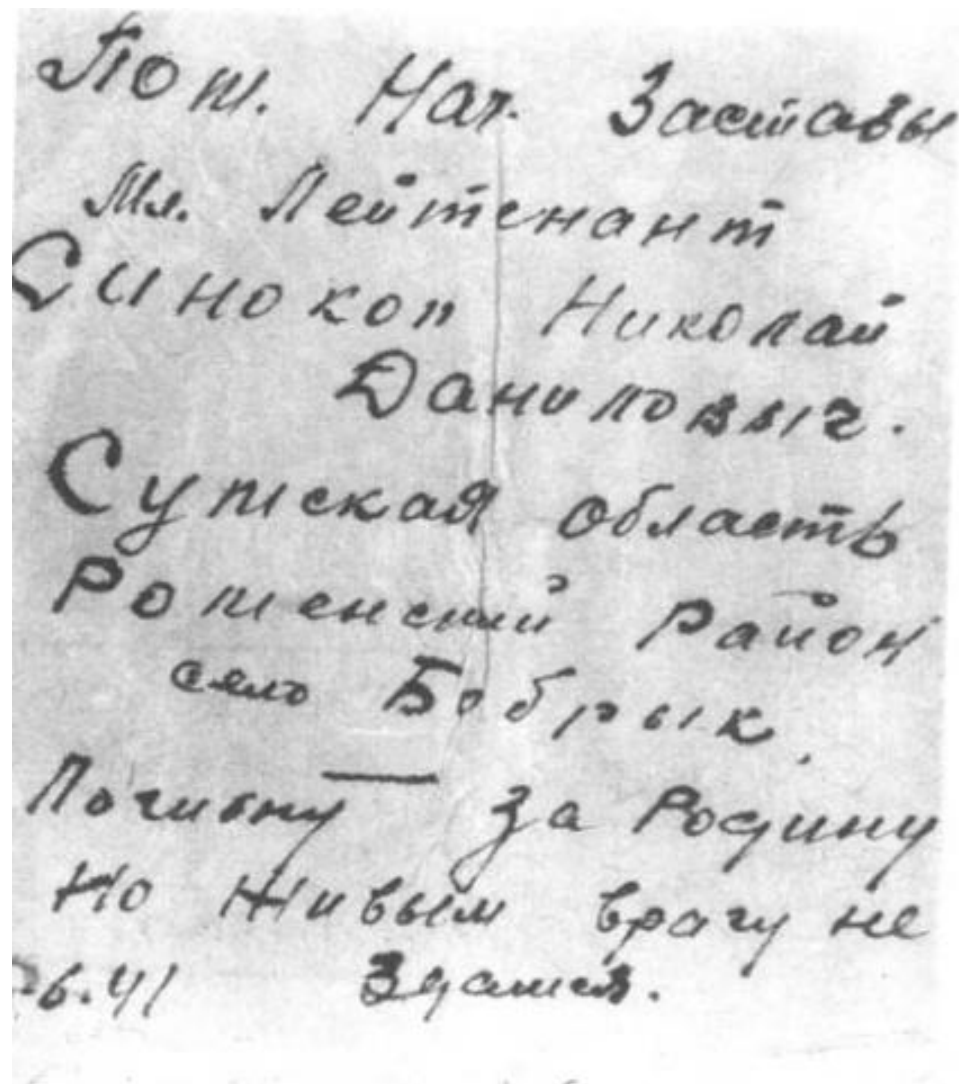 Пом. Нач. Заставы
Мл. Лейтенант
Синокоп Николай
Даниловыч.
Сумская область
Роменский Район
село Бобрык.
Погибну за Родину
Но Живым врагу не
6.41 Здамся.